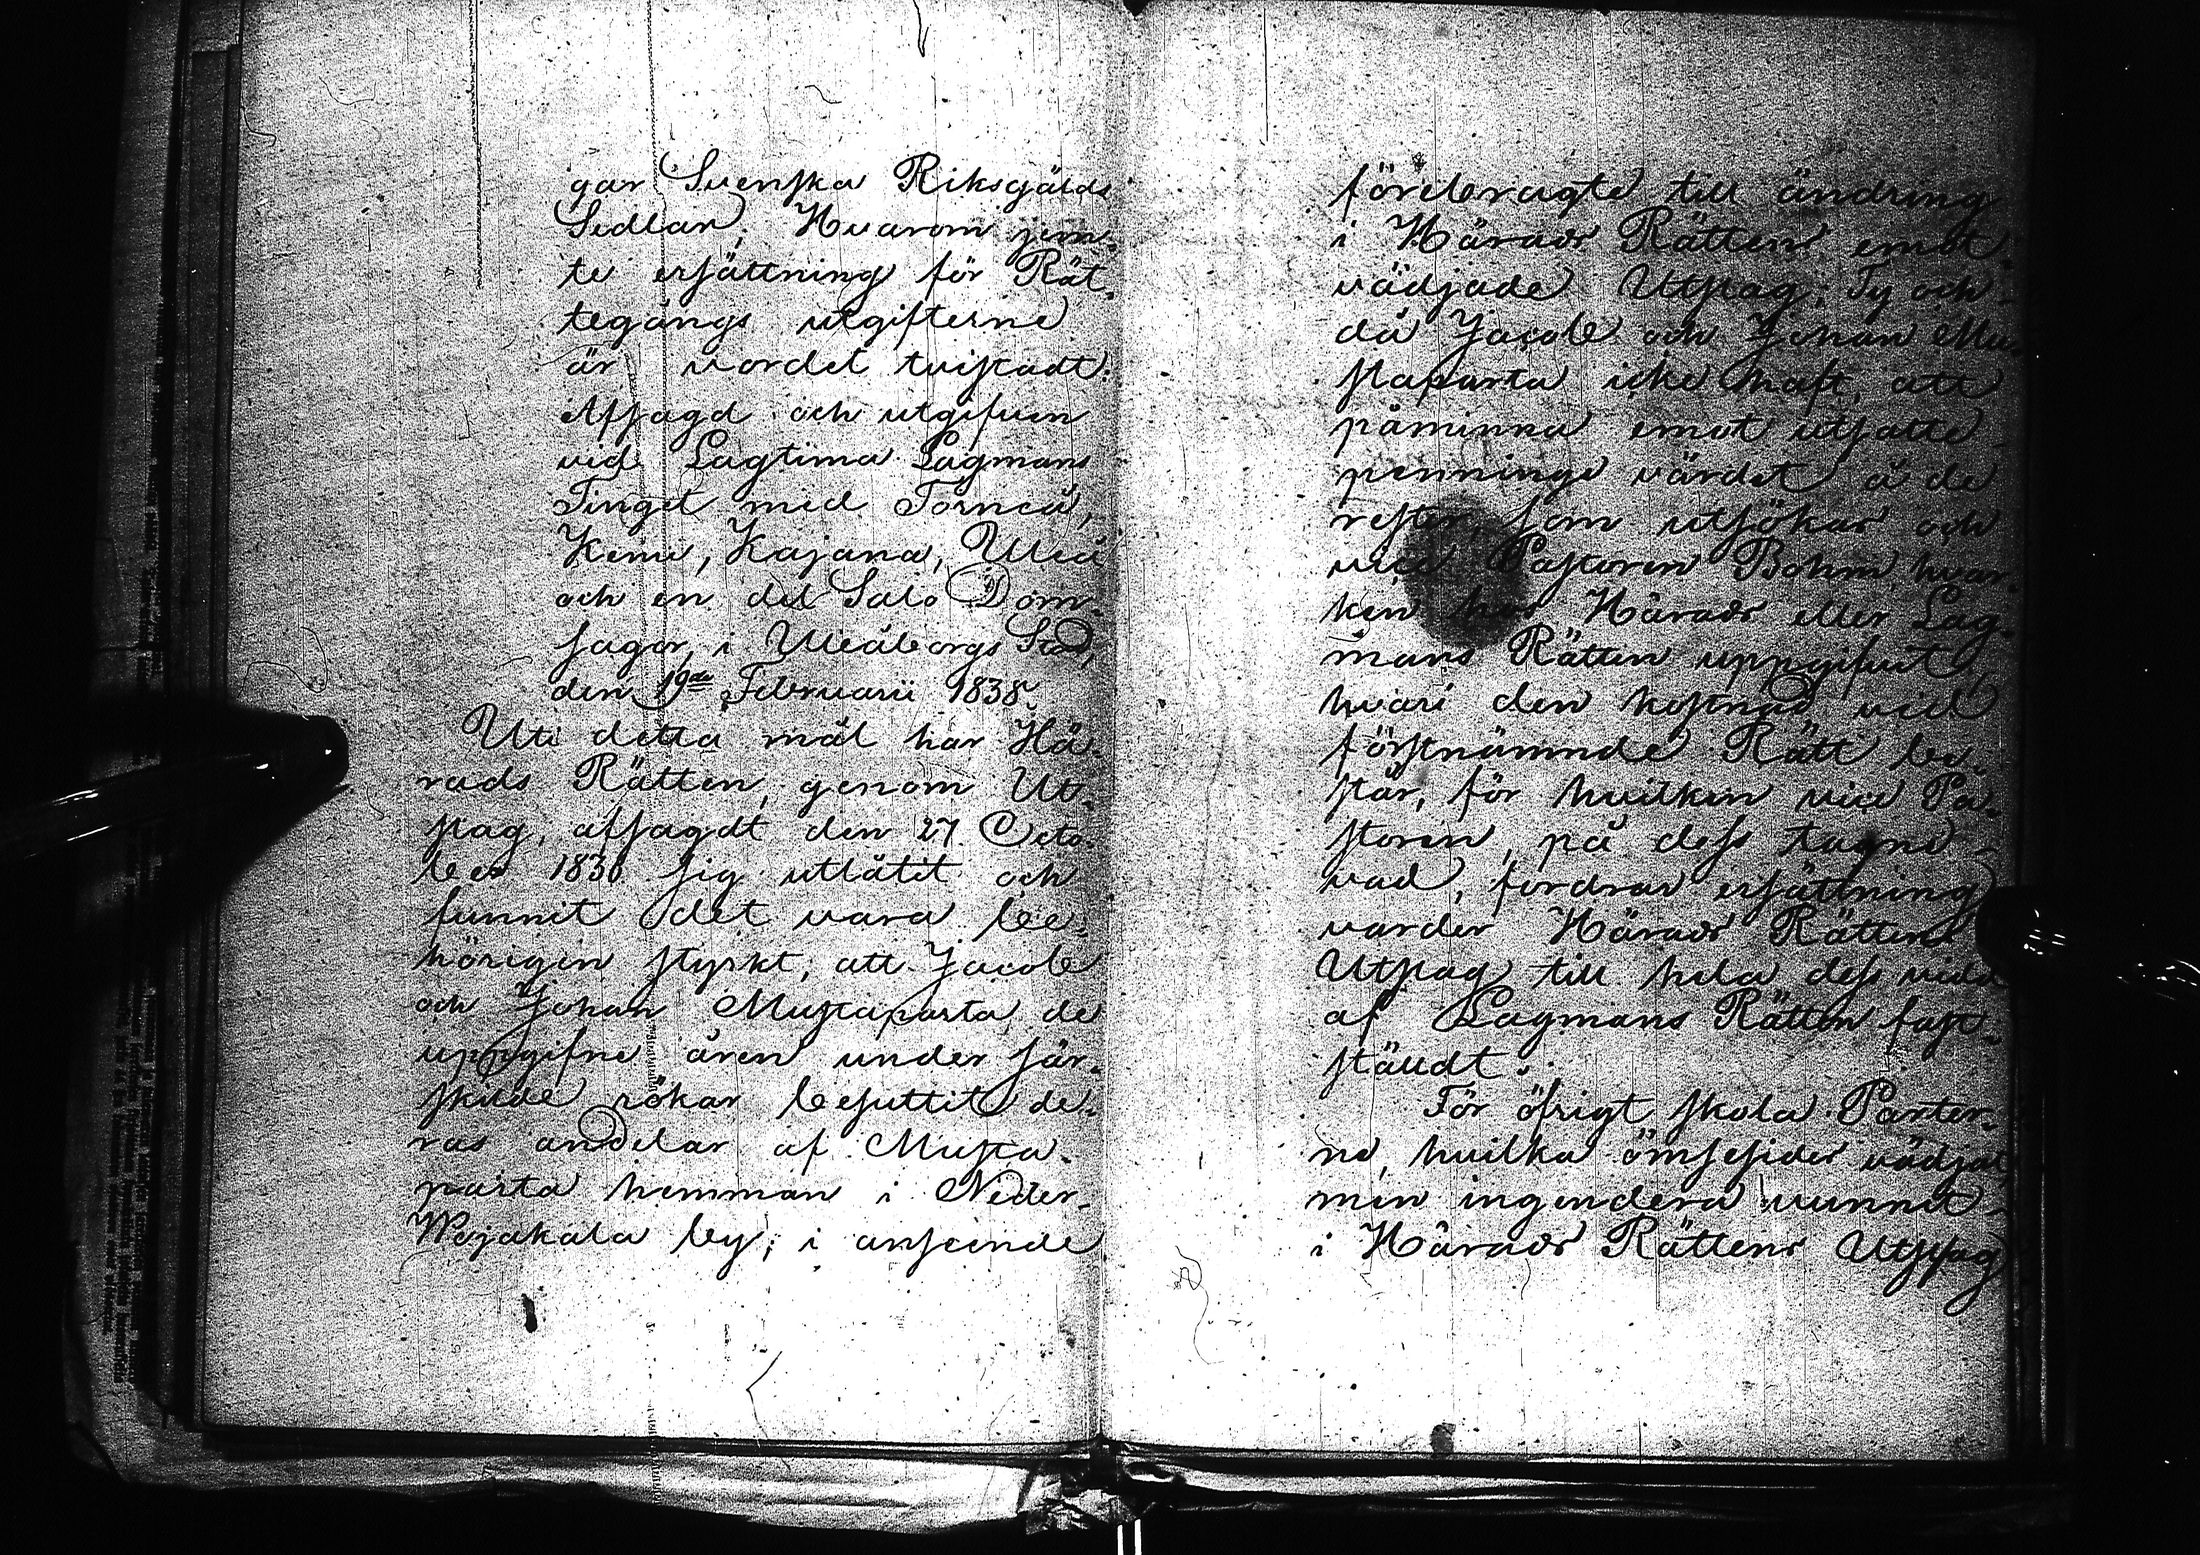 gar Svenska Riksgälds
Sedlar; Hvarom jem-
te ersättning för Rät-
tegångs utgifterne
är vordet tvistadt.
Afsagd och utgifven
vid Lagtima Lagmans
Tinget med Torneå,
Kemi, Kajana, Uleå
och en del Salo Dom-
sagor, i Uleåborgs Stad,
den 19de Februarii 1838.
Uti detta mål har Hä-
rads Rätten, genom Ut-
slag, afsagdt den 27. Octo-
ber 1836 sig utlåtit och
funnit det vara be-
hörigen styrkt, att Jacob
och Johan Mustaparta, de
uppgifne åren under sär-
skilde rökar besuttit de-
ras andelar af Musta-
parta hemman i Neder-
Wojakala by; i anseende
förebragte till ändring
i Härads Rättens emot-
vädjade Utslag; Ty och
då Jacob och Johan Mu-
staparta icke haft, att
påminna emot utsatte
pennings värdet å de
rester, som utsökas och
vice Pastoren Bohm hvar-
ken hos Härads eller Lag-
mans Rätten uppgifvit,
hvari den kostnad vid
förstnämnde Rätt be-
står, för hvilken vice Pa-
storen, på dess tagne
vad, fordrar ersättning
varder Härads Rättens
Utslag till hela dess vidd
af Lagmans Rätten fast-
stäldt.
För öfrigt skola Parter-
ne, hvilka ömsesides vädjat,
men ingendera vunnit
i Härads Rättens Utslag